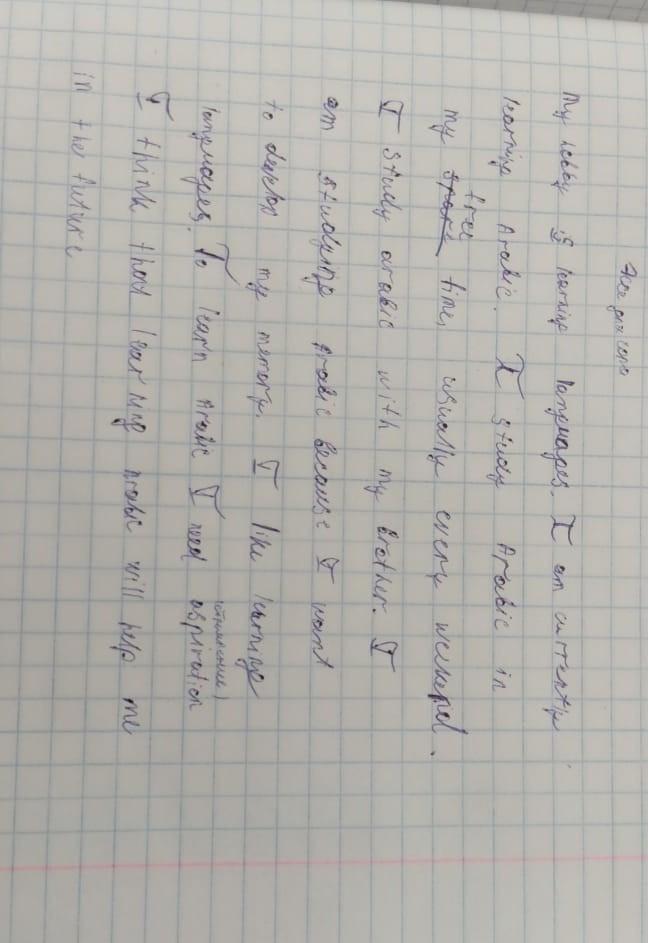 Эссе для
My hobby is learning languages. I am currently
learning Arabic. I study Arabic in
free
my spare time, usually every weekend.
I study arabic with my brother. I
am studying Arabic because I want
to develop my memory. I like learning
languages. To learn Arabic I need aspiration
I think that learning arabic will help me
in the future